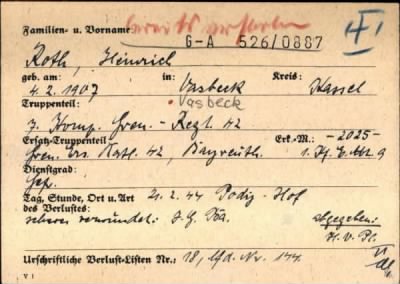 Familien- u. Vorname: bereits erhalten
G-A 526/0887
Roth, Heinrich
geb. am: in: Kreis:
4.2.1907 Vasbeck Kassel
Vasbeck
Truppenteil:
7. Komp. Gren.-Regt. 42
Ersatz-Truppenteil: Erk.-M.: -2025-
Gren. Ers. Batl. 42, Bayreuth.
Dienstgrad:
Gefr.
Tag, Stunde, Ort u. Art 21.2.44
des Verlustes:
schwer verwundet:
abgegeben:
Urschriftliche Verlust-Listen Nr.: 18, lfd. Nr. 144
V 1